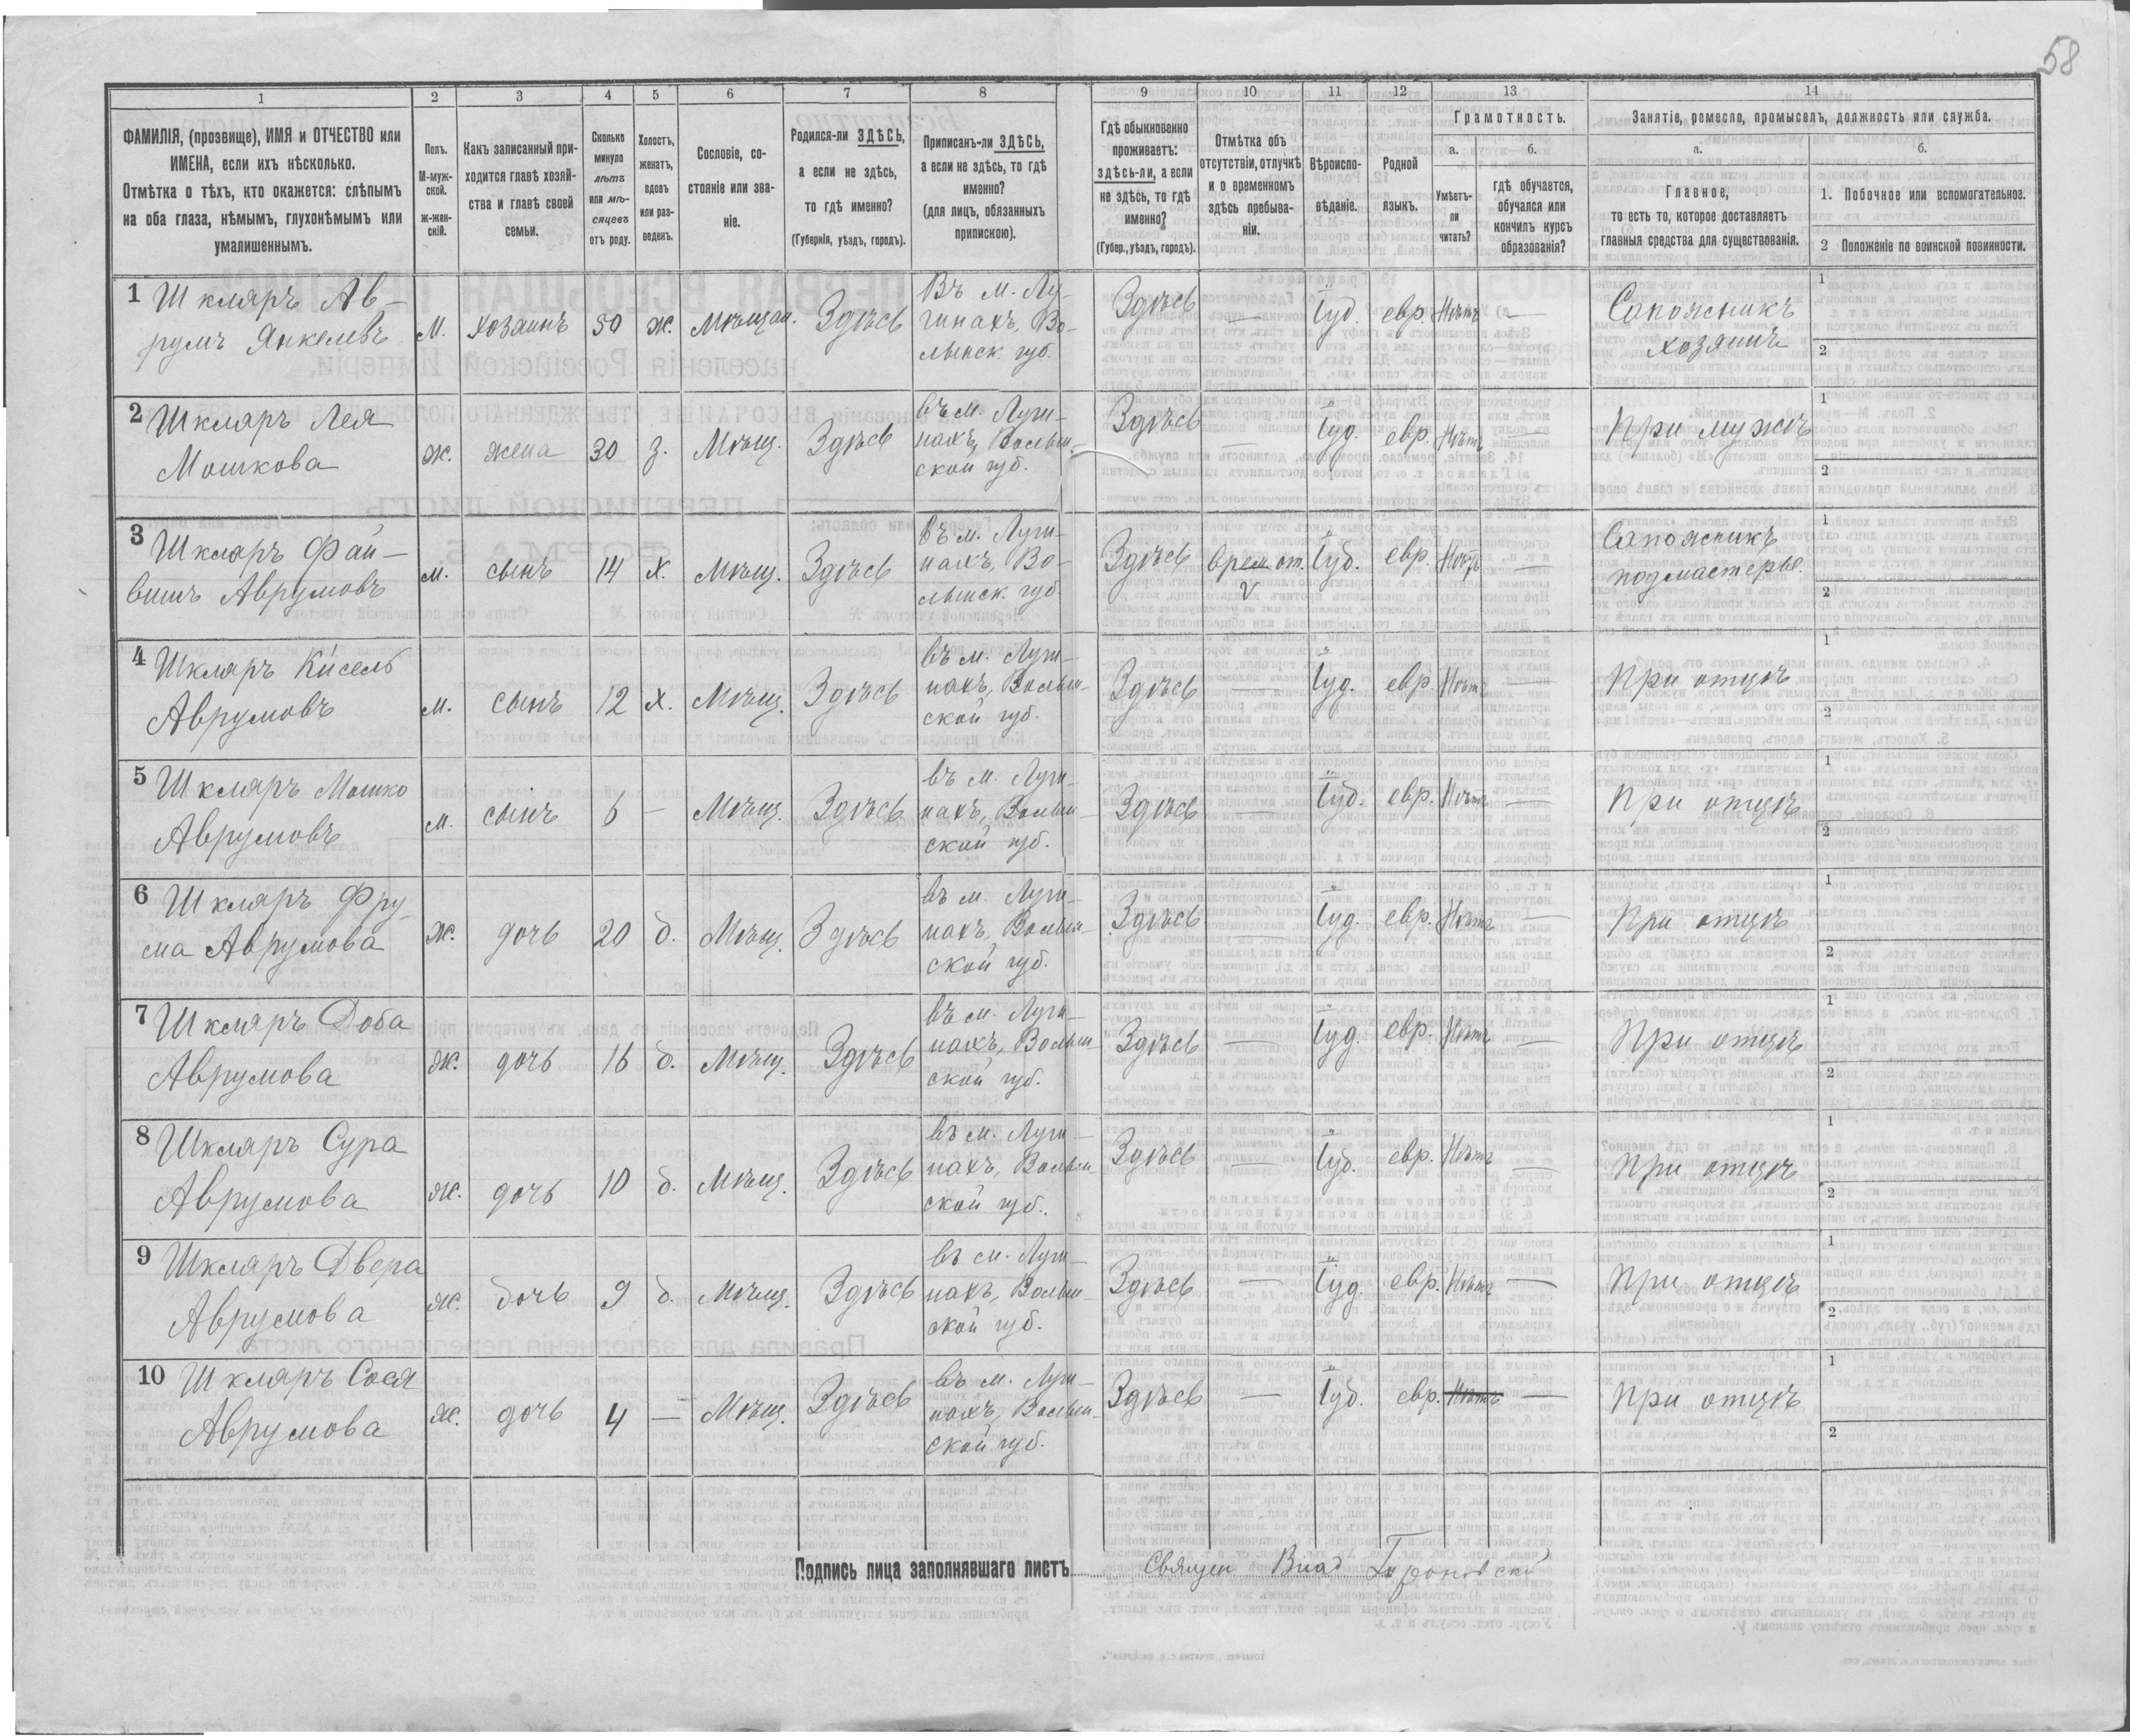 58
1 2 3 4 5 6 7 8 9 10 11 12 13 14
ФАМИЛІЯ, (прозвище), ИМЯ и ОТЧЕСТВО или
ИМЕНА, если ихъ нѣсколько.
Отмѣтка о тѣхъ, кто окажется: слѣпымъ
на оба глаза, нѣмымъ, глухонѣмымъ или
умалишеннымъ.
Полъ.
М-муж-
ской.
ж-жен-
скій.
Какъ записанный при-
ходится главѣ хозяй-
ства и главѣ своей
семьи.
Сколько
минуло
лѣтъ
или мѣ-
сяцевъ
отъ роду.
Холостъ,
женатъ,
вдовъ
или раз-
веденъ.
Сословіе, со-
стояніе или зва-
ніе.
Родился-ли ЗДѢСЬ,
а если не здѣсь,
то гдѣ именно?
(Губернія, уѣздъ, городъ).
Приписанъ-ли ЗДѢСЬ,
а если не здѣсь, то гдѣ
именно?
(для лицъ, обязанныхъ
припискою).
Гдѣ обыкновенно
проживаетъ:
здѣсь-ли, а если
не здѣсь, то гдѣ
именно?
(Губер., уѣздъ, городъ).
Отмѣтка объ
отсутствіи, отлучкѣ
и о временномъ
здѣсь пребыва-
ніи.
Вѣроиспо-
вѣданіе.
Родной
языкъ.
Грамотность.
а.
Умѣетъ-
ли
читать?
б.
гдѣ обучается,
обучался или
кончилъ курсъ
образованія?
Занятіе, ремесло, промыселъ, должность или служба.
а.
Главное,
то есть то, которое доставляетъ
главныя средства для существованія.
б.
1. Побочное или вспомогательное.
2 Положеніе по воинской повинности.
1 Шкляръ Ав-
румъ Янкелевъ
М. хозяинъ 50 ж. Мѣщан. Здѣсь
Въ м. Лу-
гинахъ, Во-
лынск. губ.
Здѣсь — Іуд. евр. Нѣтъ —
Сапожникъ
хозяинъ
1
2
2 Шкляръ Лея
Мошкова
ж. жена 30 з. Мѣщ. Здѣсь
въ м. Луги-
нахъ, Волын-
ской губ.
Здѣсь — Іуд. евр. Нѣтъ —
При мужѣ
1
2
3 Шкляръ Фай-
вишъ Аврумовъ
м. сынъ 14 х. Мѣщ. Здѣсь
въ м. Луги-
нахъ, Во-
лынск. губ
Здѣсь врем. от. Іуд. евр. Нѣтъ —
V
Сапожникъ
подмастерье.
1
2
4 Шкляръ Кисель
Аврумовъ
м. сынъ 12 х. Мѣщ. Здѣсь
въ м. Луги-
нахъ, Волын-
ской губ.
Здѣсь — Іуд. евр. Нѣтъ —
При отцѣ
1
2
5 Шкляръ Мошко
Аврумовъ
м. сынъ 6 — Мѣщ. Здѣсь
въ м. Луги-
нахъ, Волын-
ской губ.
Здѣсь — Іуд. евр. Нѣтъ —
При отцѣ
1
2
6 Шкляръ Фру-
ма Аврумова
ж. дочь 20 д. Мѣщ. Здѣсь
въ м. Луги-
нахъ, Волын-
ской губ.
Здѣсь — Іуд. евр. Нѣтъ —
При отцѣ
1
2
7 Шкляръ Доба
Аврумова
ж. дочь 16 д. Мѣщ. Здѣсь
въ м. Луги-
нахъ, Волын
ской губ.
Здѣсь — Іуд. евр. Нѣтъ —
При отцѣ
1
2
8 Шкляръ Сура
Аврумова
ж. дочь 10 д. Мѣщ. Здѣсь
въ м. Луги-
нахъ, Волын
ской губ.
Здѣсь — Іуд. евр. Нѣтъ —
При отцѣ
1
2
9 Шкляръ Двера
Аврумова
ж. дочь 9 д. Мѣщ. Здѣсь
въ м. Луги-
нахъ, Волын-
ской губ.
Здѣсь — Іуд. евр. Нѣтъ —
При отцѣ
1
2
10 Шкляръ Сося
Аврумова
ж. дочь 4 — Мѣщ. Здѣсь
въ м. Луги-
нахъ, Волын-
ской губ.
Здѣсь — Іуд. евр. Нѣтъ —
При отцѣ
1
2
Подпись лица заполнявшаго листъ Священ Влад